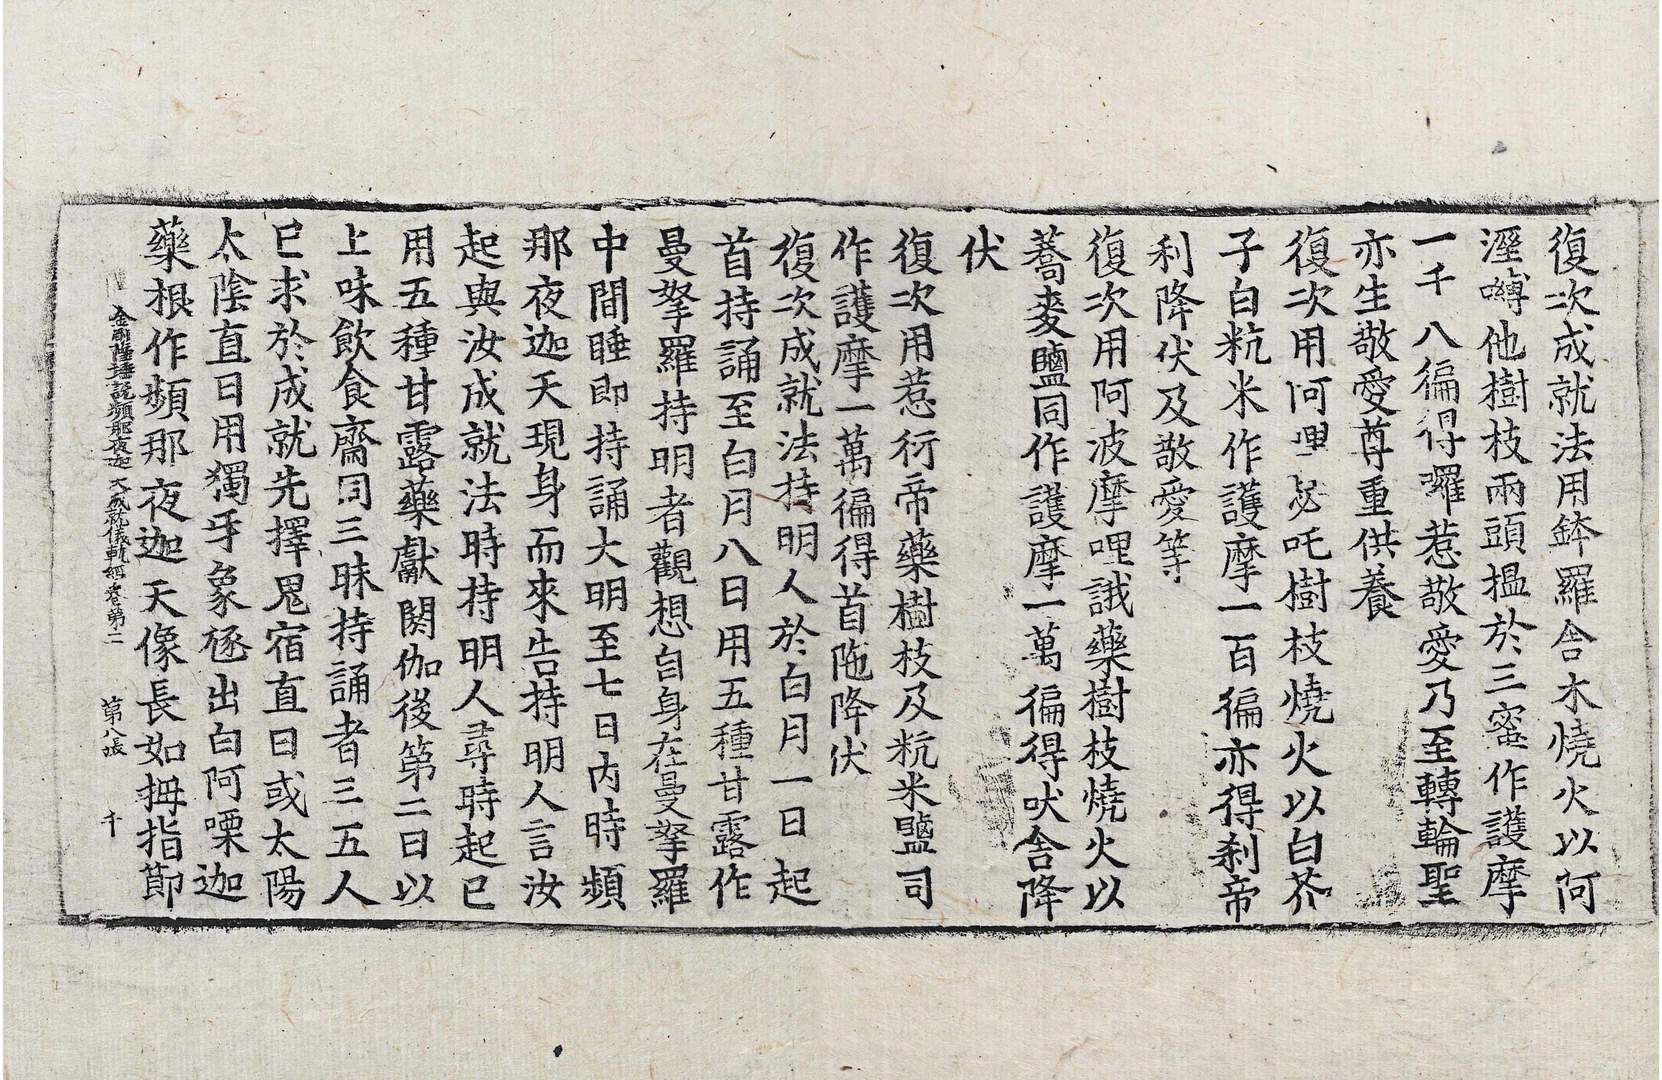 復次成就法用鉢羅舎木燒火以阿
溼嚩他樹枝兩頭搵於三蜜作護摩
一千八徧得囉惹敬愛乃至轉輪聖
亦生敬愛尊重供養
復次用阿哩迦吒樹枝燒火以白芥
子白粇米作護摩一百徧亦得刹帝
利降伏及敬愛等
復次用阿波摩哩誐藥樹枝燒火以
蕎麥鹽同作護摩一萬徧得吠舎降
伏
復次用惹衍帝藥樹枝及粇米鹽同
作護摩一萬徧得首陁降伏
復次成就法持明人於白月一日起
首持誦至白月八日用五種甘露作
曼拏羅持明者觀想自身在曼拏羅
中間睡即持誦大明至七日內時頻
那夜迦天現身而來告持明人言汝
起與汝成就法時持明人尋時起已
用五種甘露藥獻閼伽後第二日以
上味飲食齋同三昧持誦者三五人
已求於成就先擇鬼宿直日或太陽
太陰直日用獨牙象𨒬出白阿㗚迦
藥根作頻那夜迦天像長如拇指節
金剛薩埵說頻那夜迦天成就儀軌經卷第二 第八張 千